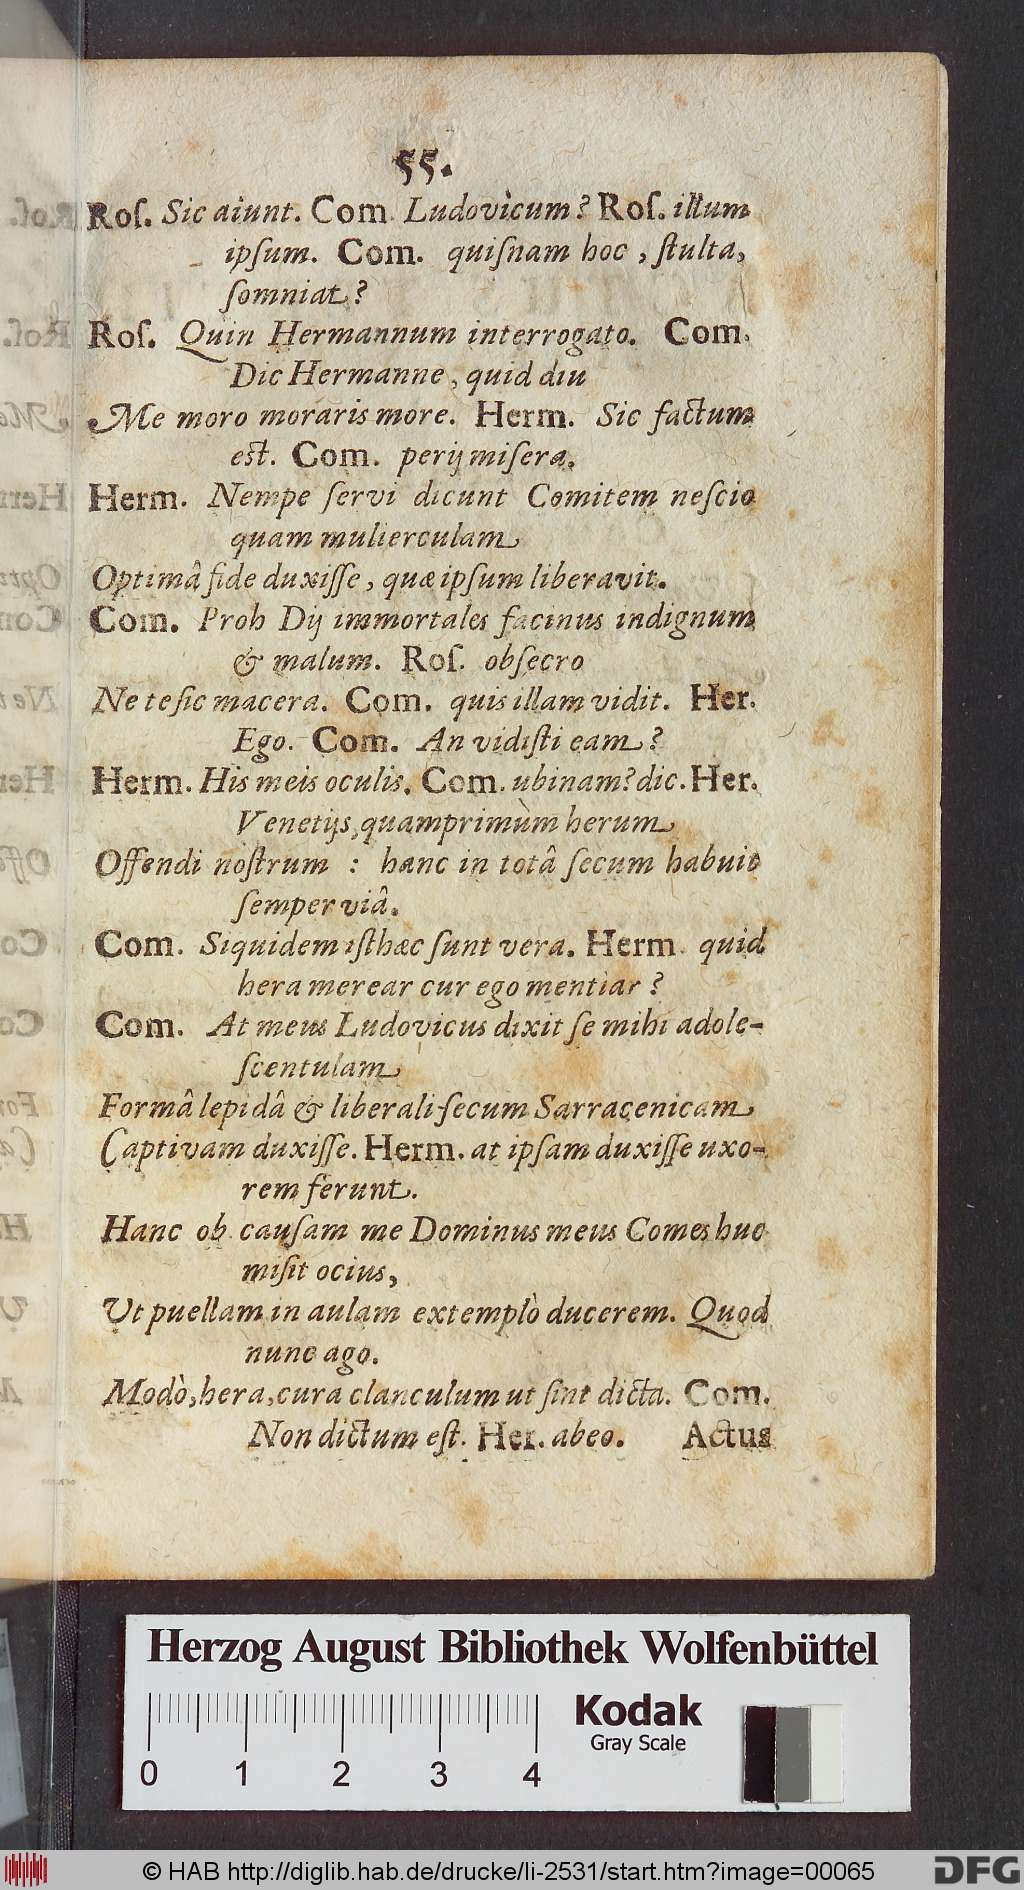 55.
Roſ. Sic aiunt. Com. Ludovìcum? Roſ. illum
ipſum. Com. quiſnam hoc, ſtulta,
ſomniat?
Roſ. Quin Hermannum interrogato. Com.
Dic Hermanne, quid diu
Me moro moraris more. Herm. Sic factum
eſt. Com. perij miſera.
Herm. Nempe ſervi dicunt Comitem neſcio
quam mulierculam
Optimâ fide duxiſſe, quæ ipſum liberavit.
Com. Proh Dij immortales facinus indignum
& malum. Roſ. obſecro
Ne te ſic macera. Com. quis illam vidit. Her.
Ego. Com. An vidiſti eam?
Herm. His meis oculis. Com. ubinam? dic. Her.
Venetijs, quamprimùm herum
Offendi noſtrum : hanc in totâ ſecum habuit
ſemper viâ.
Com. Siquidem iſthæc ſunt vera. Herm. quid
hera merear cur ego mentiar?
Com. At meus Ludovicus dixit ſe mihi adole-
ſcentulam
Formâ lepidâ & liberali ſecum Sarracenicam
Captivam duxiſſe. Herm. at ipſam duxiſſe uxo-
rem ferunt.
Hanc ob cauſam me Dominus meus Comes huc
miſit ocius,
Ut puellam in aulam extemplò ducerem. Quod
nunc ago.
Modò, hera, cura clanculum ut ſint dicta. Com.
Non dictum eſt. Her. abeo. Actus
Herzog August Bibliothek Wolfenbüttel
0 1 2 3 4
Kodak
Gray Scale
© HAB http://diglib.hab.de/drucke/li-2531/start.htm?image=00065
DFG